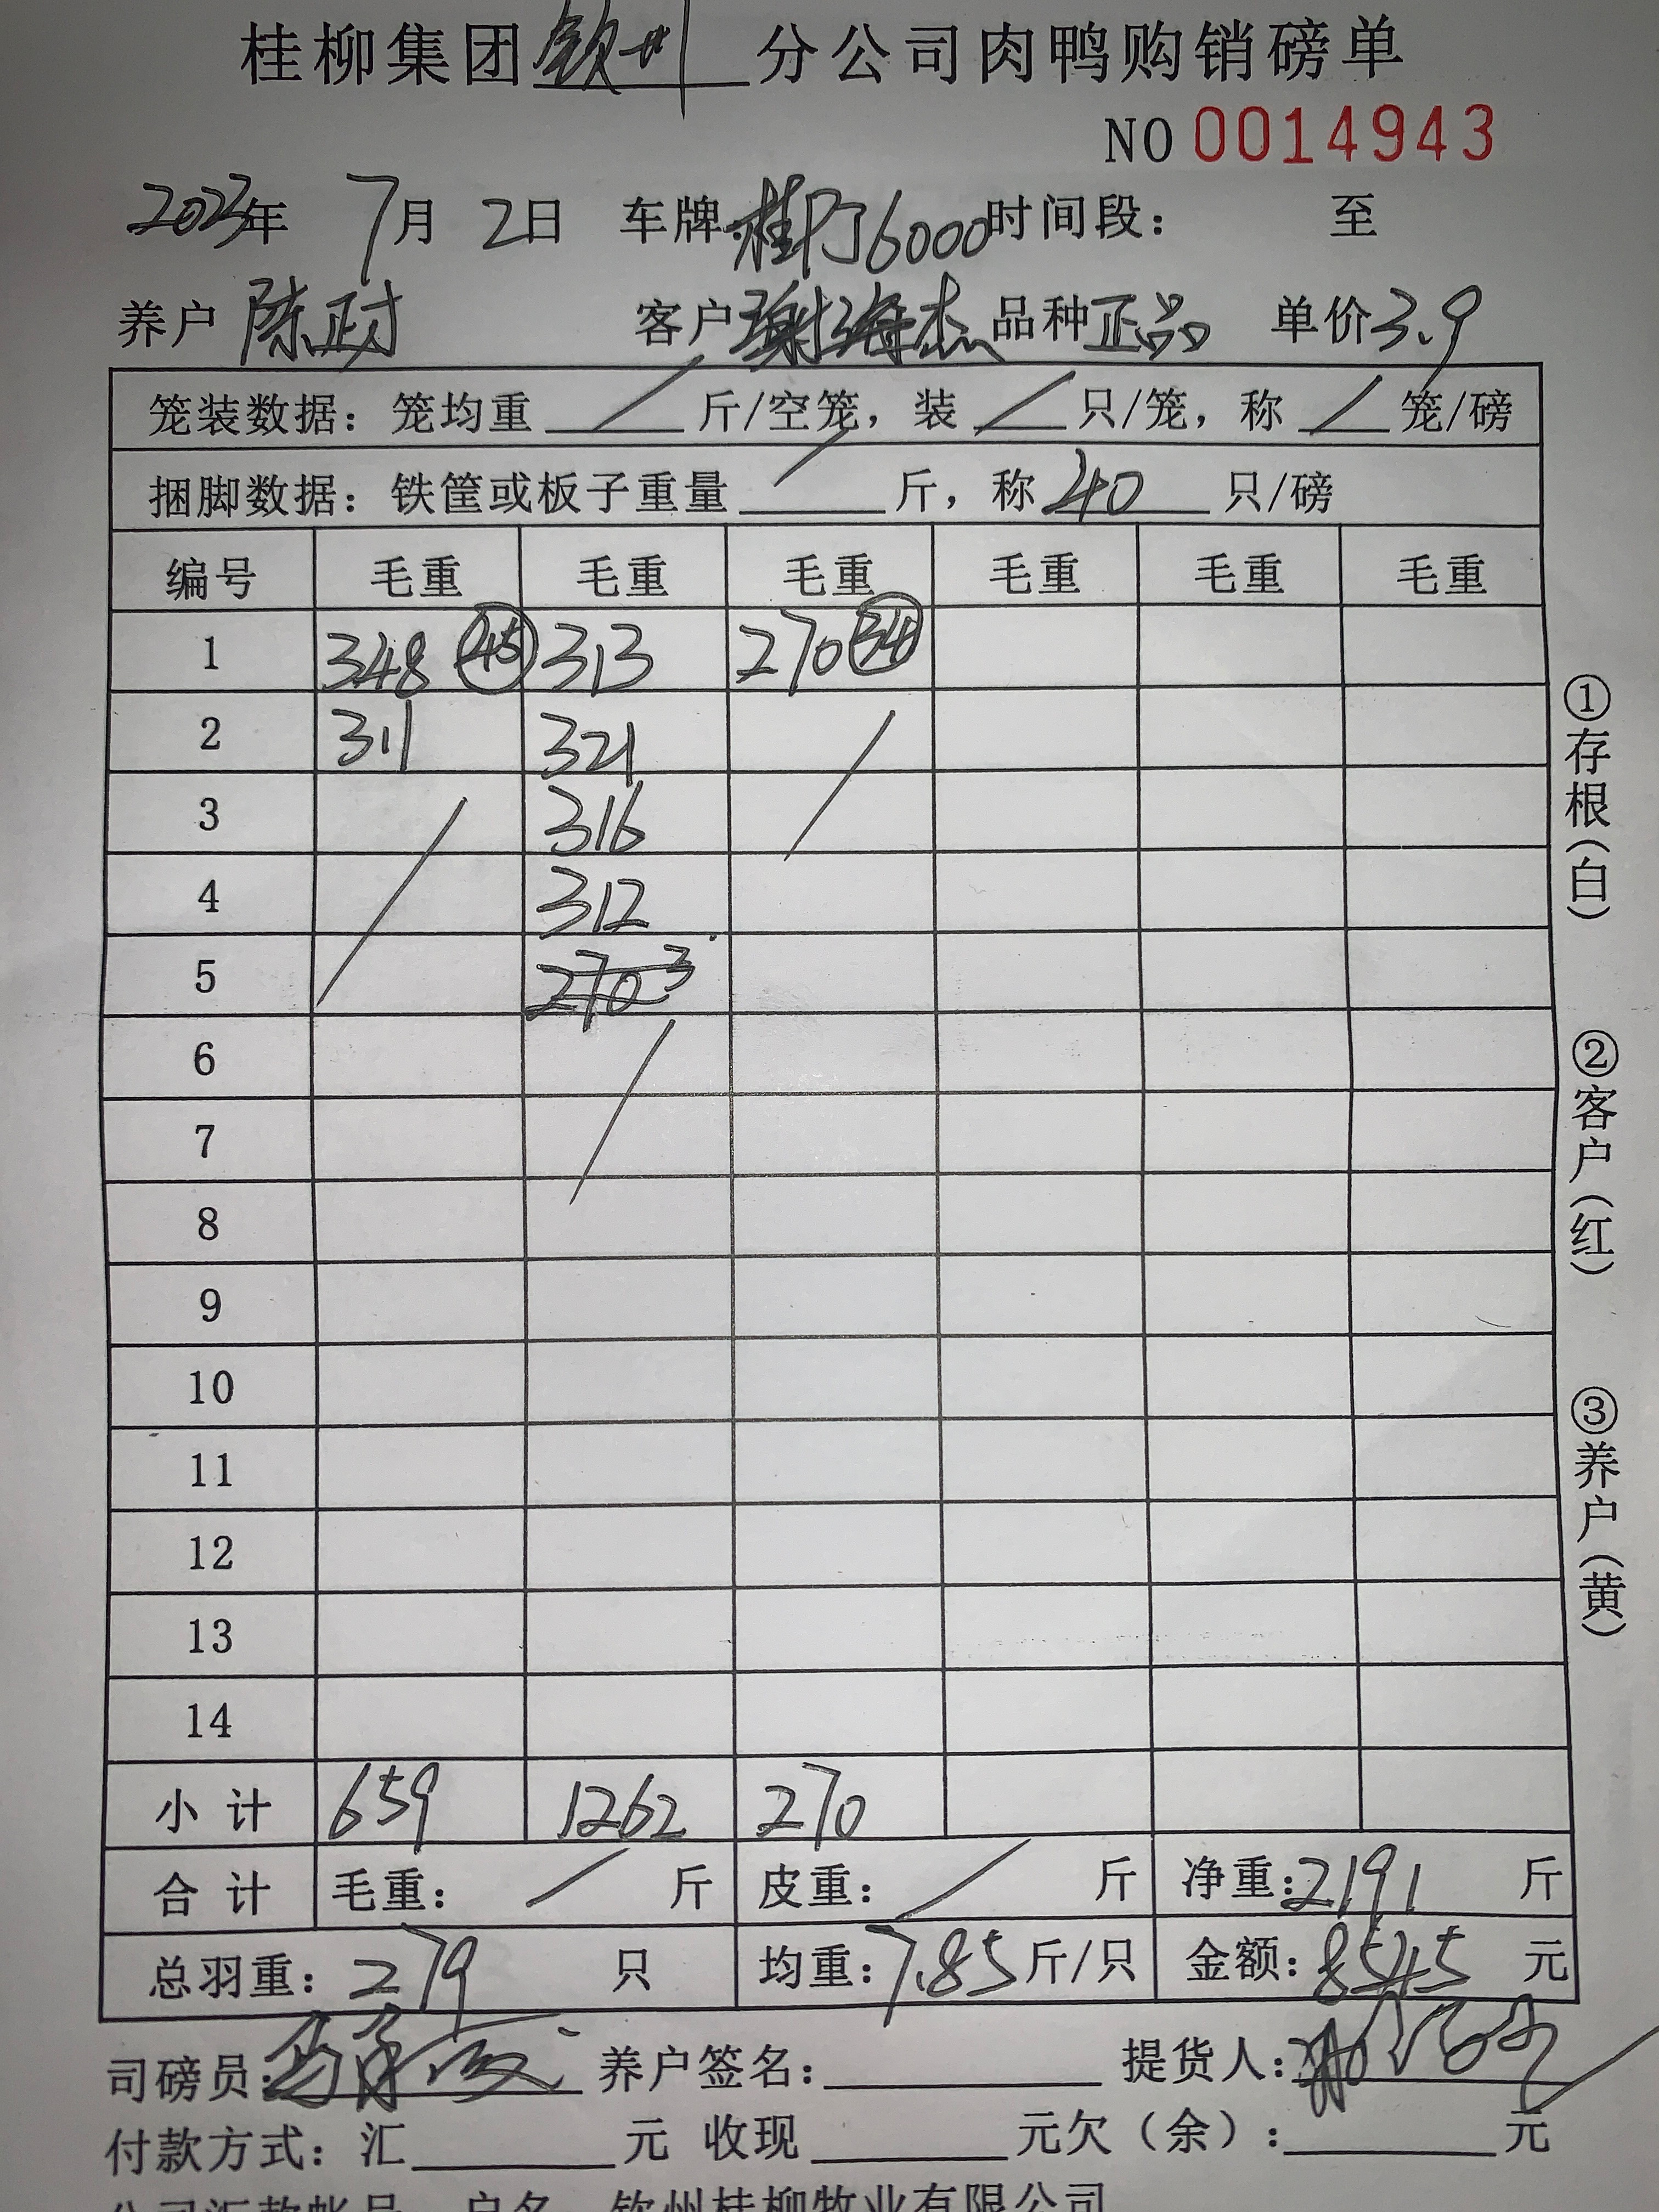 桂柳集团钦州分公司肉鸭购销磅单
NO 0014943
2023年 7月 2日 车牌:桂 6000 时间段: 至
养户 陈 客户 谢海杰 品种 正品 单价 3.9
笼装数据:笼均重 / 斤/空笼,装 / 只/笼,称 / 笼/磅
捆脚数据:铁筐或板子重量 / 斤,称 40 只/磅
编号 毛重 毛重 毛重 毛重 毛重 毛重
1 348 45 313 270 34
2 311 321 /
3 / 316
4 312
5 270 3
6 /
7
8
9
10
11
12
13
14
小计 659 1262 270
合计 毛重: / 斤 皮重: / 斤 净重:2191 斤
总羽重:279 只 均重:7.85 斤/只 金额:8545 元
司磅员: 养户签名: 提货人:
付款方式:汇 元 收现 元欠(余): 元
公司汇款帐号 户名 钦州桂柳牧业有限公司
①存根(白)
②客户(红)
③养户(黄)